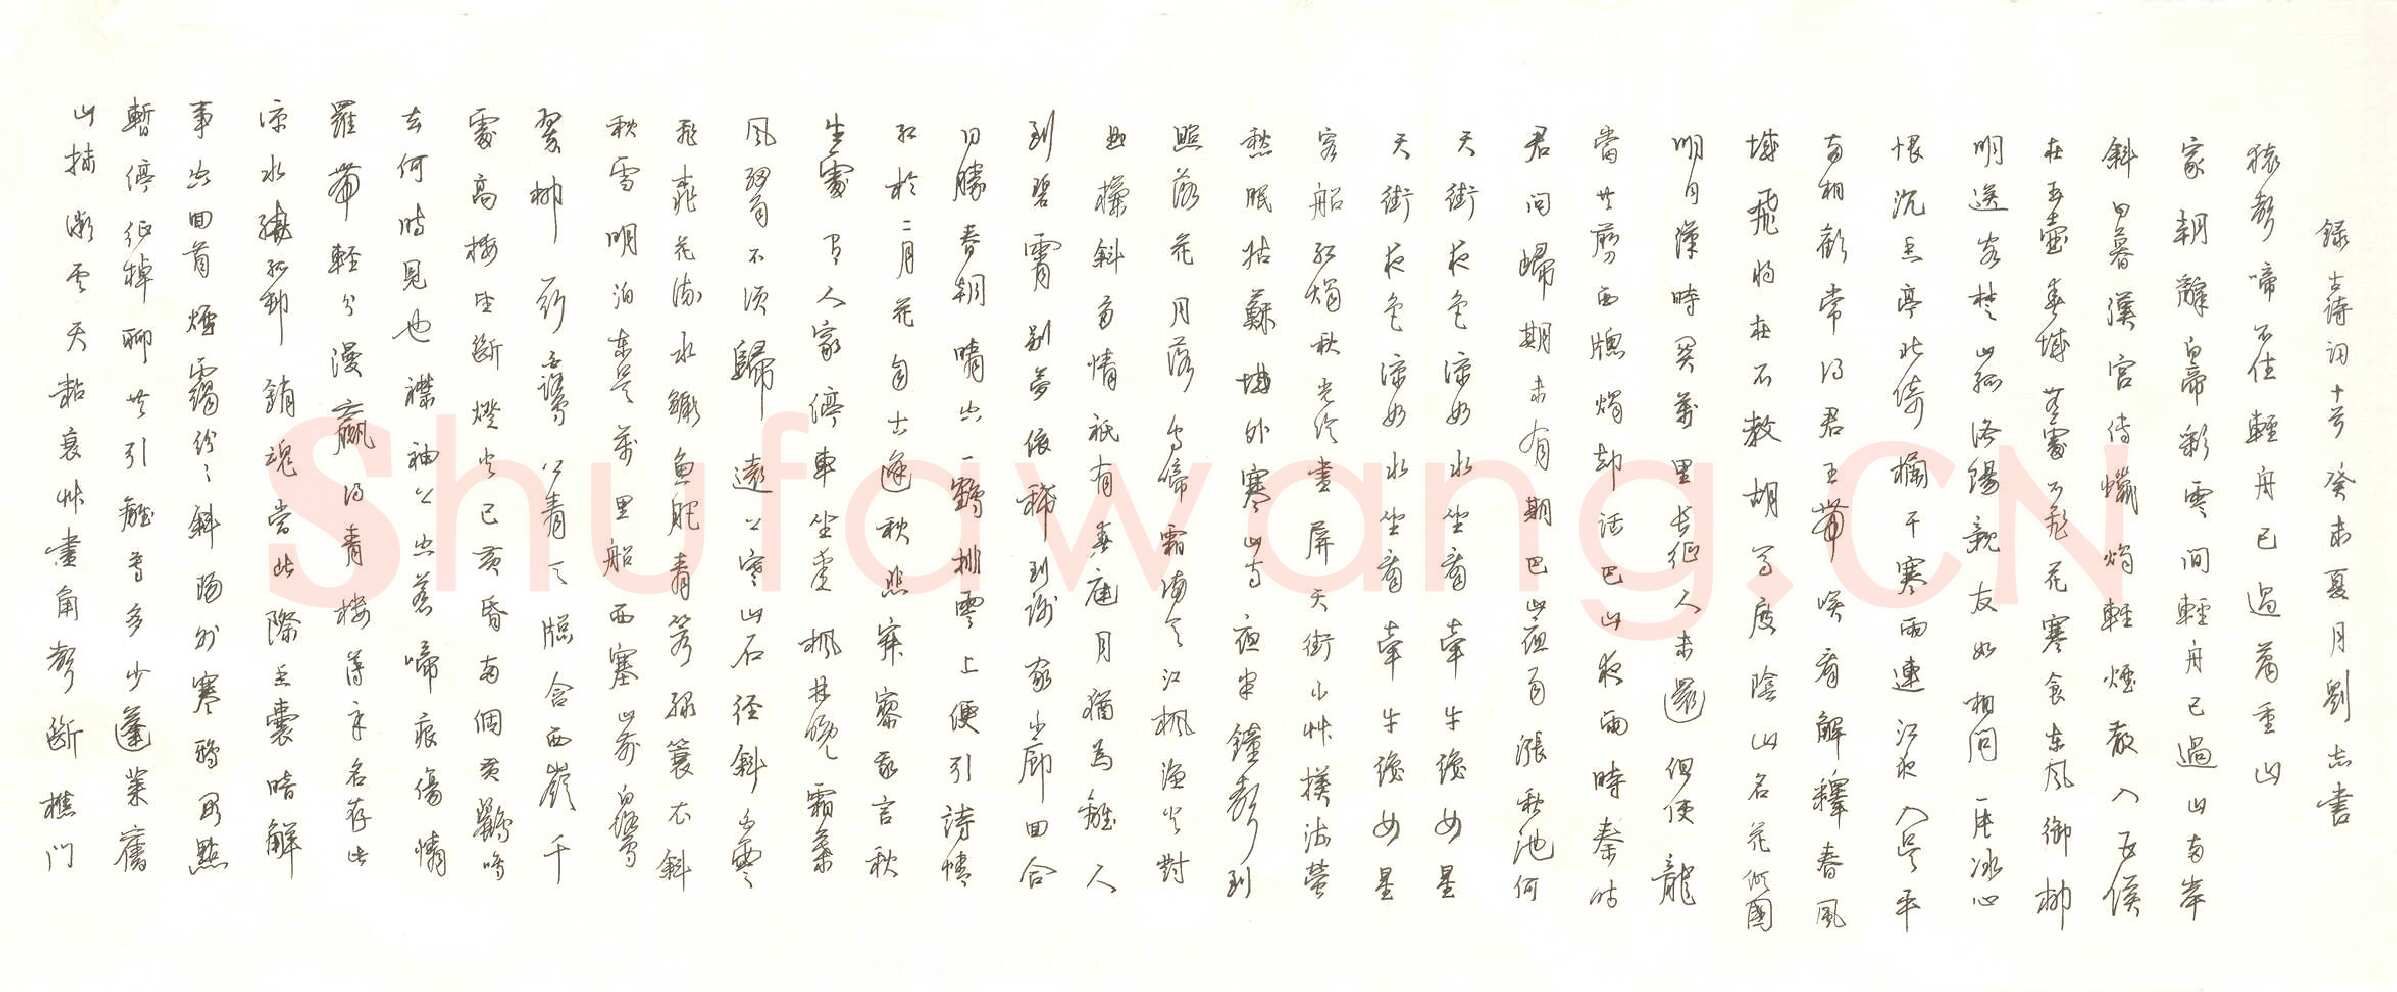 山抹微雲天粘衰艸畫角聲斷樵門
暫停征棹聊共引離尊多少蓬萊舊
事空回首煙靄紛紛斜陽外寒鴉點
流水繞孤邨銷魂當此際香囊暗解
羅帶輕分漫贏得青樓薄幸名存此
去何時見也襟袖上空惹啼痕傷情
處高樓望斷燈火已黃昏兩個黃鸝鳴
翠柳一行白鷺上青天牕含西嶺千
秋雪門泊東吳萬里船西塞山前白鷺
飛桃花流水鱖魚肥青箬綠蓑衣斜
風細雨不須歸遠上寒山石徑斜白雲
生處有人家停車坐愛楓林晚霜葉
紅於二月花自古逢秋悲寂寥我言秋
日勝春朝晴空一鶴排雲上便引詩情
到碧霄別夢依稀到謝家小廊回合
曲欄斜多情祇有春庭月猶為離人
照落花月落烏啼霜滿天江楓漁火對
愁眠姑蘇城外寒山寺夜半鐘聲到
客船紅燭秋光冷畫屏天街小艸撲流螢
天街夜色涼如水坐看牽牛織女星
天街夜色涼如水坐看牽牛織女星
君問歸期未有期巴山夜雨漲秋池何
當共剪西牕燭却話巴山夜雨時秦時
明月漢時關萬里長征人未還但使龍
城飛將在不教胡馬度陰山名花傾國
兩相歡常得君王帶笑看解釋春風
恨沉香亭北倚欄干寒雨連江夜入吳平
明送客楚山孤洛陽親友如相問一片冰心
在玉壺春城無處不飛花寒食東風御柳
斜日暮漢宮傳蠟燭輕煙散入五侯
家朝辭白帝彩雲間輕舟已過山兩岸
猿聲啼不住輕舟已過萬重山
錄古詩詞十首癸未夏月劉志書
Shufawang.CN